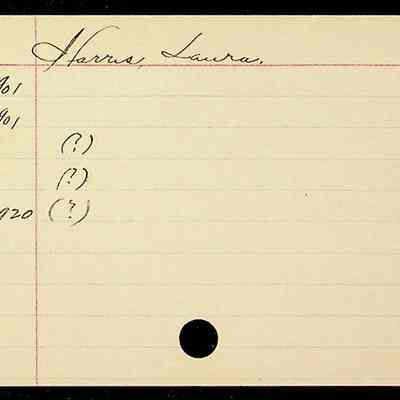 Harris, Laura.
901
901
(?)
(?)
920 (?)